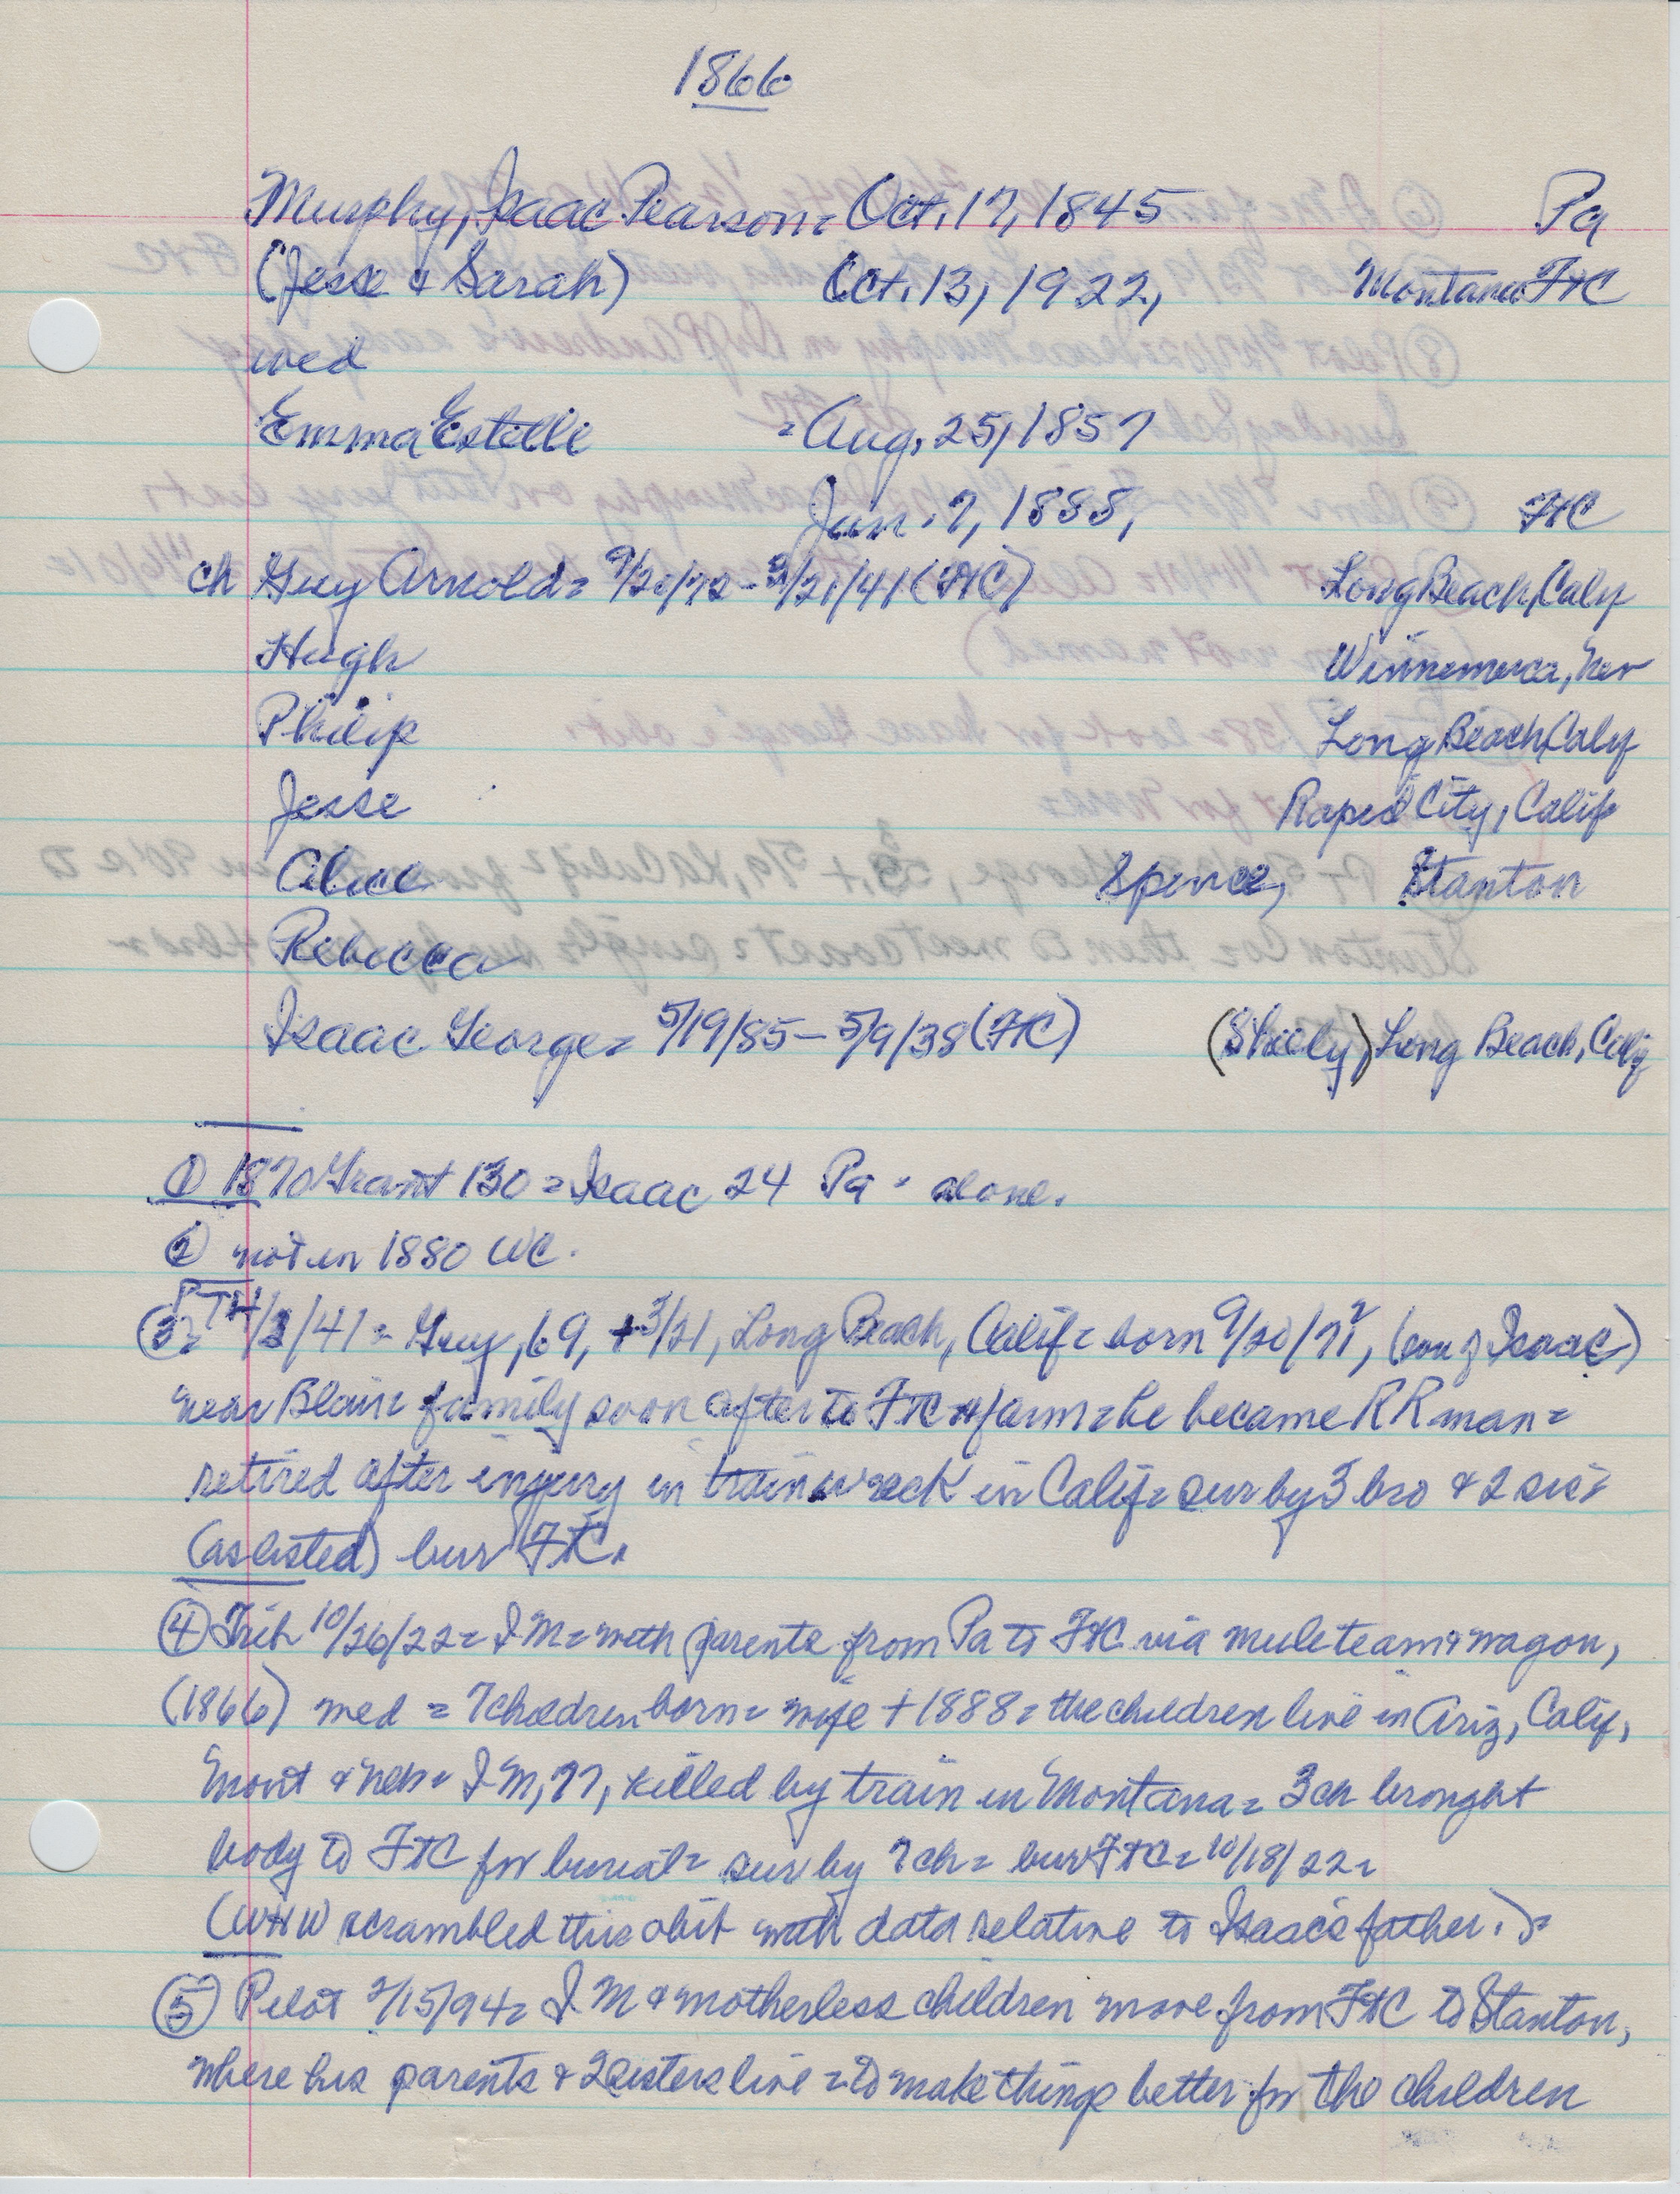 1866
Murphy, Isaac Pearson = Oct. 17, 1845 Pa
(Jesse & Sarah) Oct. 13, 1922, Montana FtC
wed
Emma Estelle = Aug. 25, 1857
Jan. 7, 1888, FtC
ch Guy Arnold = 9/20/72 - 3/21/41 (FtC) Long Beach, Calif
Hugh Winnemucca, Nev
Philip Long Beach, Calif
Jesse Rapid City, Calif
Alice Spence, Stanton
Rebecca
Isaac George = 5/19/85 - 5/9/38 (FtC) Long Beach, Calif
① 1870 Grant 130 = Isaac 24 Pa - alone.
② not in 1880 WC.
③ = PT 4/3/41 = Guy, 69, + 3/21, Long Beach, Calif = born 9/20/71, (son of Isaac)
near Blair = family soon after to FtC farm = he became RR man =
retired after injury in train wreck in Calif = sur by 3 bro & 2 sis =
(as listed) bur FtC.
④ Trib 10/26/22 = I M = with parents from Pa to FtC via mule team & wagon,
(1866) wed = 7 children born = wife + 1888 = the children live in Ariz, Calif,
Mont & Neb = I M, 77, killed by train in Montana = 3 ch brought
body to FtC for burial = sur by 7 ch = bur FtC = 10/18/22 =
(WHW scrambled this obit with data relative to Isaac's father.) =
⑤ Pilot 2/15/94 = I M & motherless children move from FtC to Stanton,
where his parents & 2 sisters live = to make things better for the children